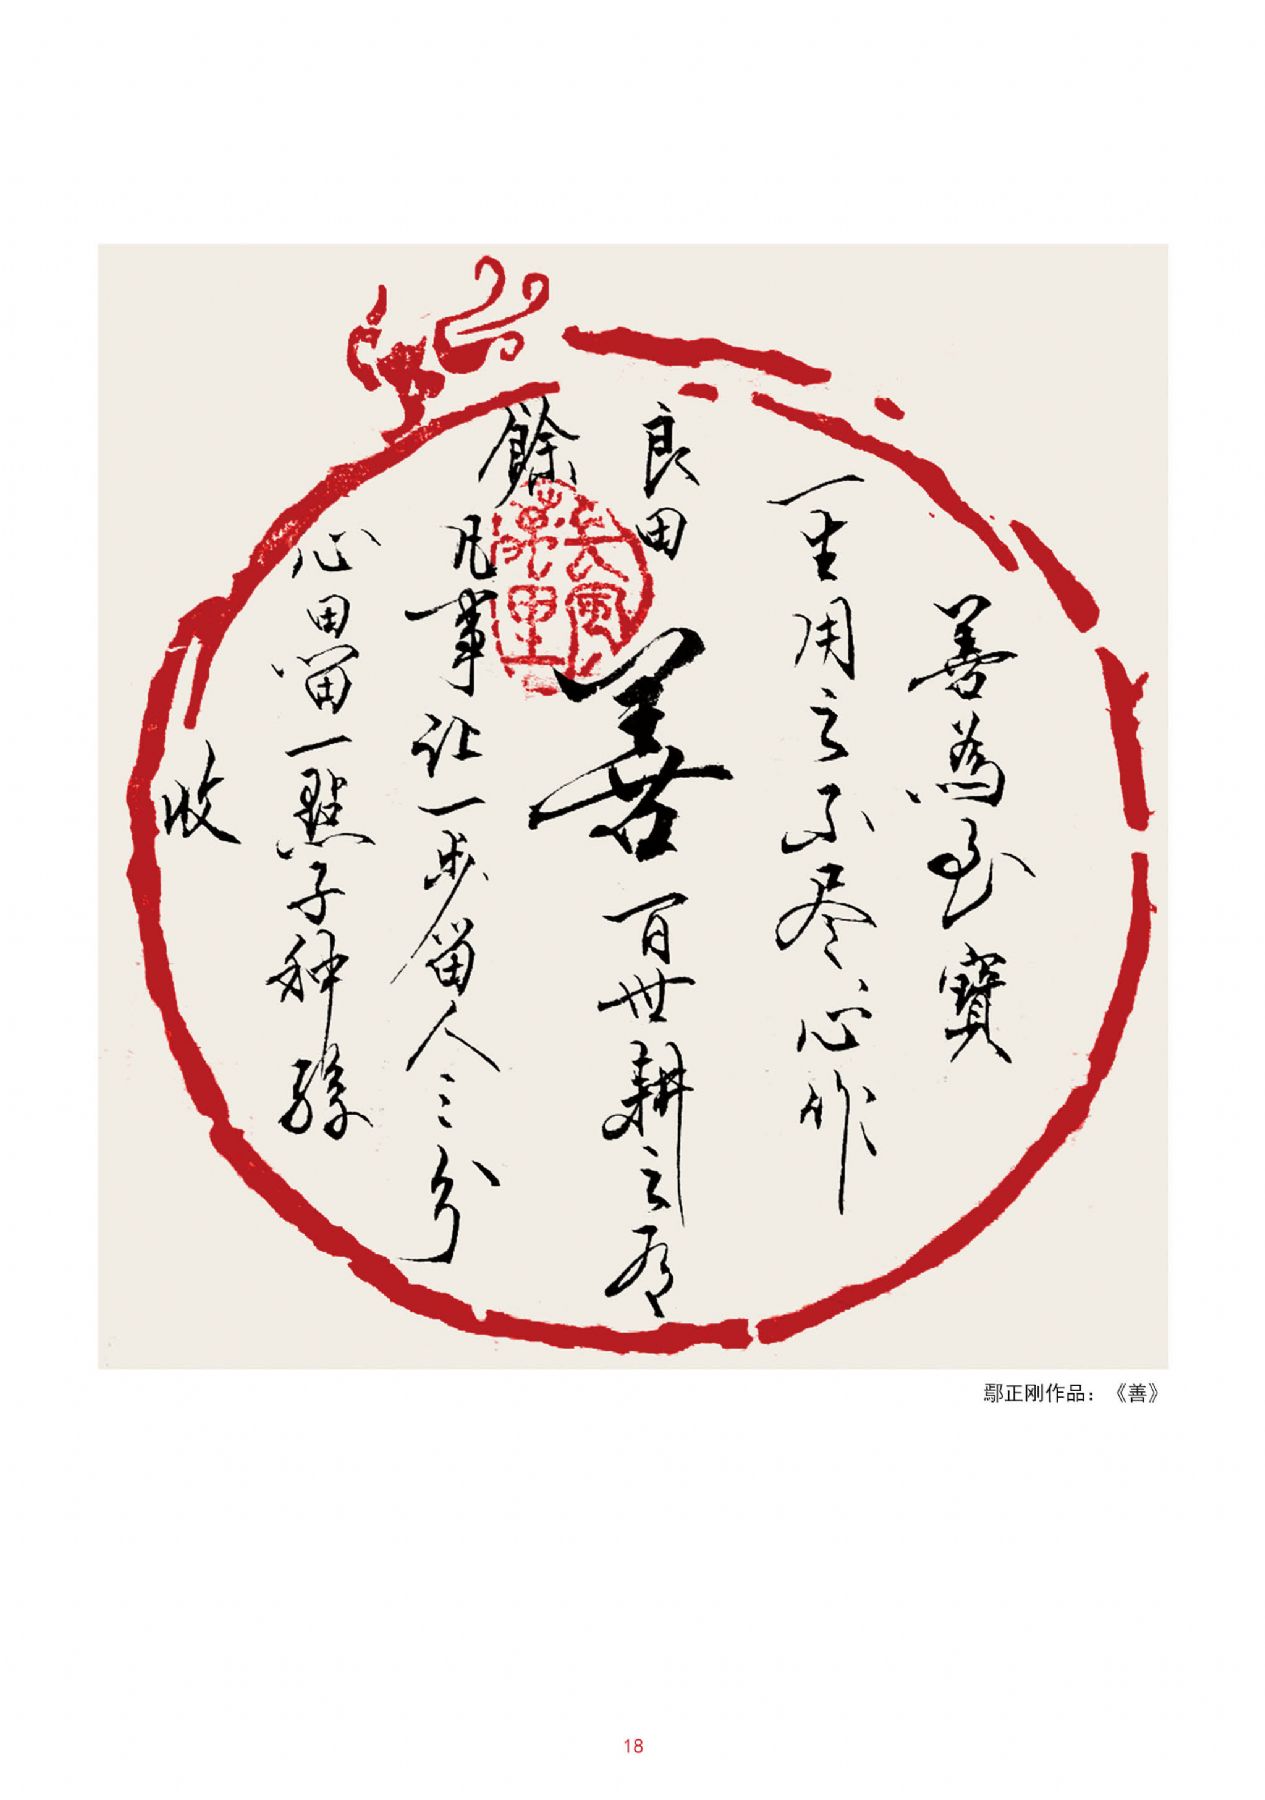 善為至寶
一生用之不尽心作
良田
善
百世耕之有
餘
凡事让一步留人三分
心田留一點子種孫
收
鄢正刚作品：《善》
18